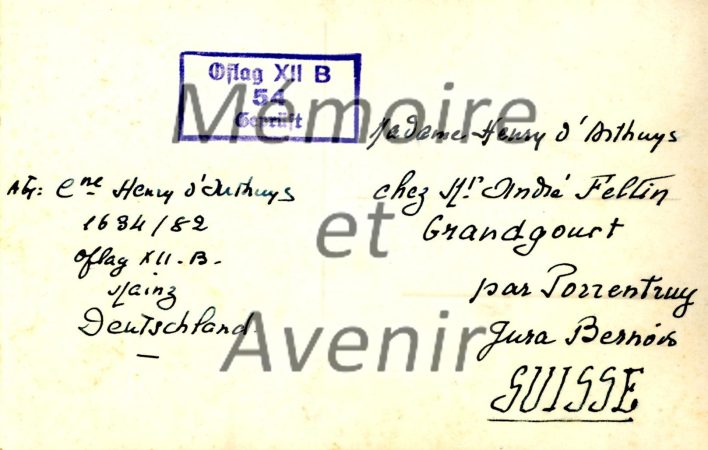 Oflag XII B
54
Geprüft
Mémoire
et
Avenir
Madame Henry d'Arthuys
chez Mr André Feltin
Grandgourt
par Porrentruy
Jura Bernois
SUISSE
Cne Henry d'Arthuys
1634/82
Oflag XII.B.
Mainz
Deutschland